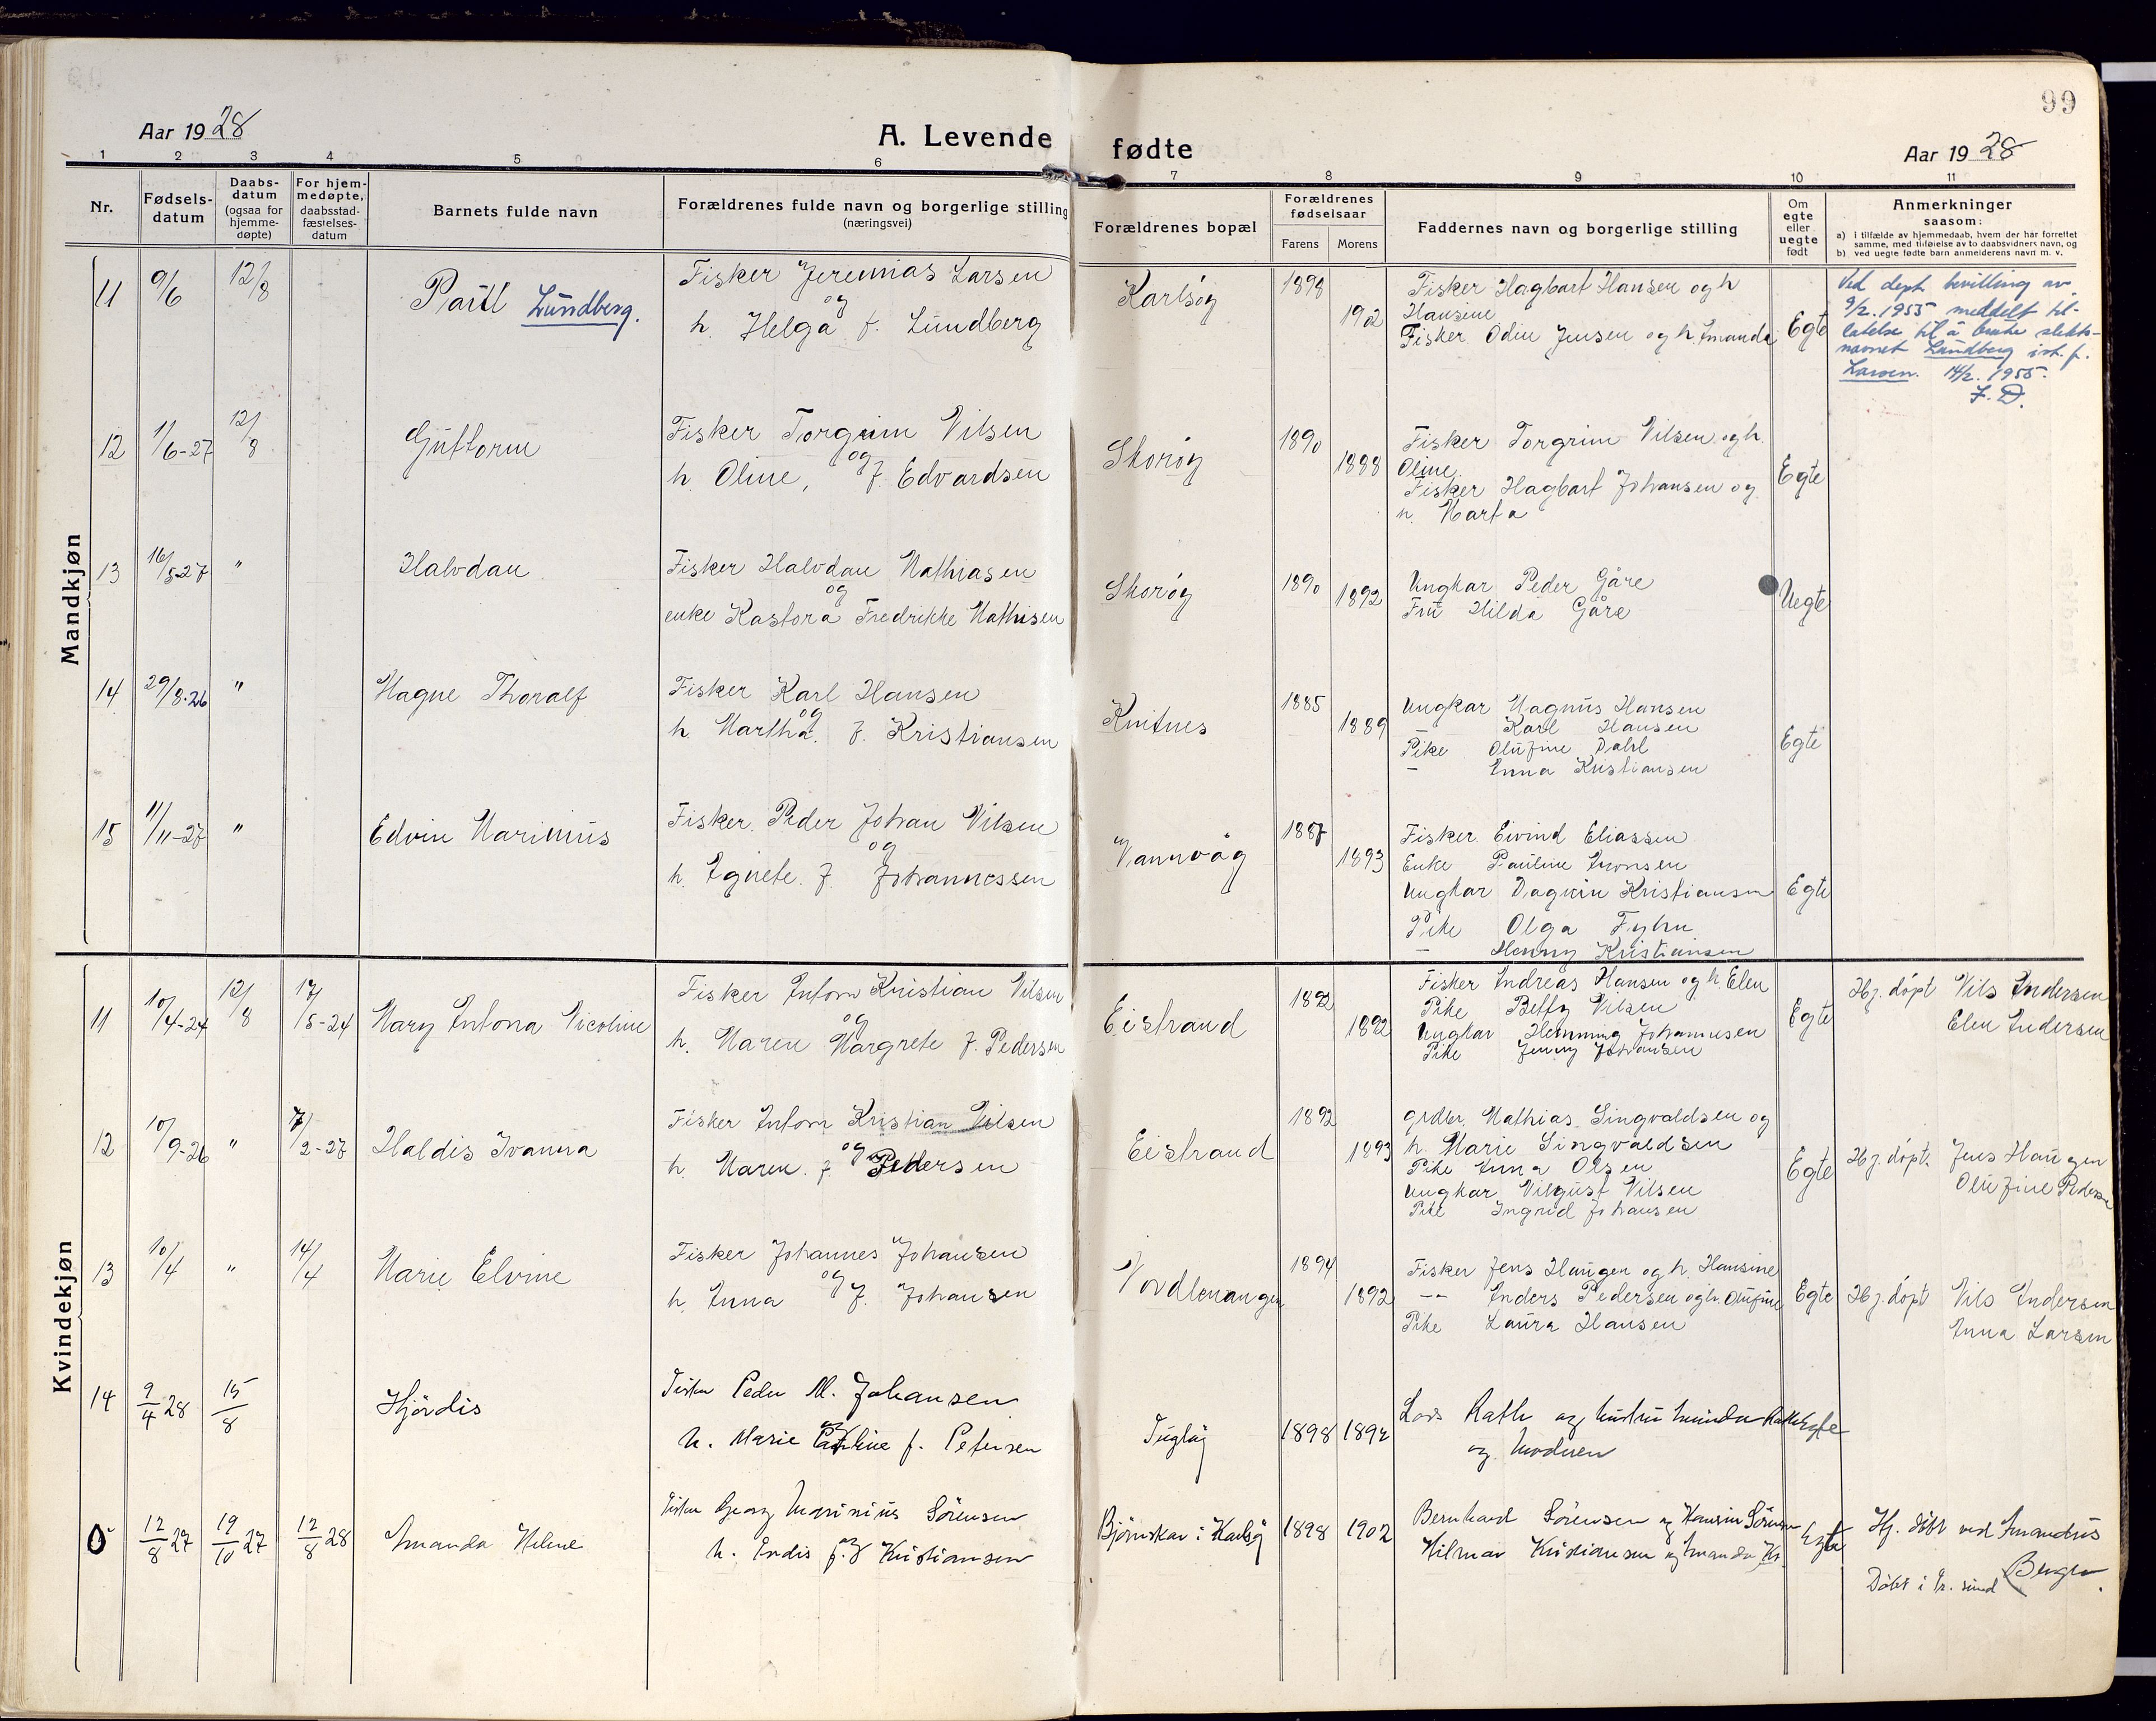 99
Aar 1928
A. Levende fødte
Aar 1928
1 2 3 4 5 6 7 8 9 10 11
Nr.
Fødsels-
datum
Daabs-
datum
(ogsaa for
hjemme-
døpte)
For hjem-
medøpte,
daabsstad-
fæstelses-
datum
Barnets fulde navn
Forældrenes fulde navn og borgerlige stilling
(næringsvei)
Forældrenes bopæl
Forældrenes
fødselsaar
Farens Morens
Faddernes navn og borgerlige stilling
Om
egte
eller
uegte
født
Anmerkninger
saasom:
a) i tilfælde av hjemmedaab, hvem der har forrettet
samme, med tilføielse av to daabsvidners navn, og
b) ved uegte født barn anmelderens navn m. v.
Mandkjøn
11 9/6 12/8 Paul Lundberg.
Fisker Jeremias Larsen
og
h. Helga f. Lundberg
Karlsøy 1898 1902
Fisker Hagbart Hansen og h
Hansine
Fisker Odin Jensen og h. Amanda
Egte
Ved dept. bevilling av
9/2. 1955 meddelt til-
latelse til å bruke slekts-
navnet Lundberg ist. f.
Larsen. 14/2. 1955.
12 11/6-27 12/8 Guttorm
Fisker Torgrim Nilsen
og
h. Oline, f. Edvardsen
Skorøy 1890 1898
Fisker Torgrim Nilsen og h.
Oline.
Fisker Hagbart Johansen og
h. Marta
Egte
13 16/5-27 " Halvdan
Fisker Halvdan Mathiasen
og
enke Kastora Fredrikke Mathisen
Skorøy 1890 1892
Ungkar Peder Gåre
Fru Hilda Gåre
Uegte
14 29/8-26 " Magne Thoralf
Fisker Karl Hansen
og
h. Martha. f. Kristiansen
Knitnes 1885 1889
Ungkar Magnus Hansen
— Karl Hansen
Pike Olufine Dahl
— Anna Kristiansen
Egte
15 11/11-27 " Edvin Marinius
Fisker Peder Johan Nilsen
og
h. Agnete. f. Johannessen
Vannvåg 1887 1893
Fisker Eivind Eliassen
Enke Pauline Aronsen
Ungkar Dagvin Kristiansen
Pike Olga Fyhn
— Henny Kristiansen
Egte
Kvindekjøn
11 10/4-24 12/8 17/5-24 Mary Antona Nicoline
Fisker Anton Kristian Nilsen
og
h. Maren Margrete f. Pedersen
Eistrand 1892 1892
Fisker Andreas Hansen og h. Elen
Pike Betty Nilsen
Ungkar Hemming Johannesen
Pike Jenny Johansen
Egte
Hj. døpt Nils Andersen
Elen Andersen
12 10/9-26 " 7/2-27 Haldis Ivanna
Fisker Anton Kristian Nilsen
og
h. Maren. f. Pedersen
Eistrand 1892 1893
Grdbr. Mathias Singvaldsen og
h. Marie Singvaldsen
Pike Anna Olsen
Ungkar Nilgust Nilsen
Pike Ingrid Johansen
Egte
Hj. døpt. Jens Haugen
Olufine Pedersen
13 10/4 " 14/4 Marie Elvine
Fisker Johannes Johansen
og
h. Anna f. Johansen
Nordlenangen 1894 1892
Fisker Jens Haugen og h. Hansine
—— Anders Pedersen og h. Olufine
Pike Laura Hansen
Egte
Hj. døpt Nils Andersen
Anna Larsen
14 9/4 28 15/8 Hjördis
Fisker Peder M. Johansen
og
h. Marie Pauline f. Petersen
1898 1892
og moderen
Egte
0 12/8 27 19/10 27 12/8 28 Amanda Helene
Fisker Georg Marinius Sörensen
og
h. Kristiansen
Björnskar i Karlsöy 1898 1902
Bernhard Sörensen og Hansine Sörensen
Hilmar Kristiansen og Amanda Kr.
Egte
Hj. döbt ved Amandus
Berger
Döbt i